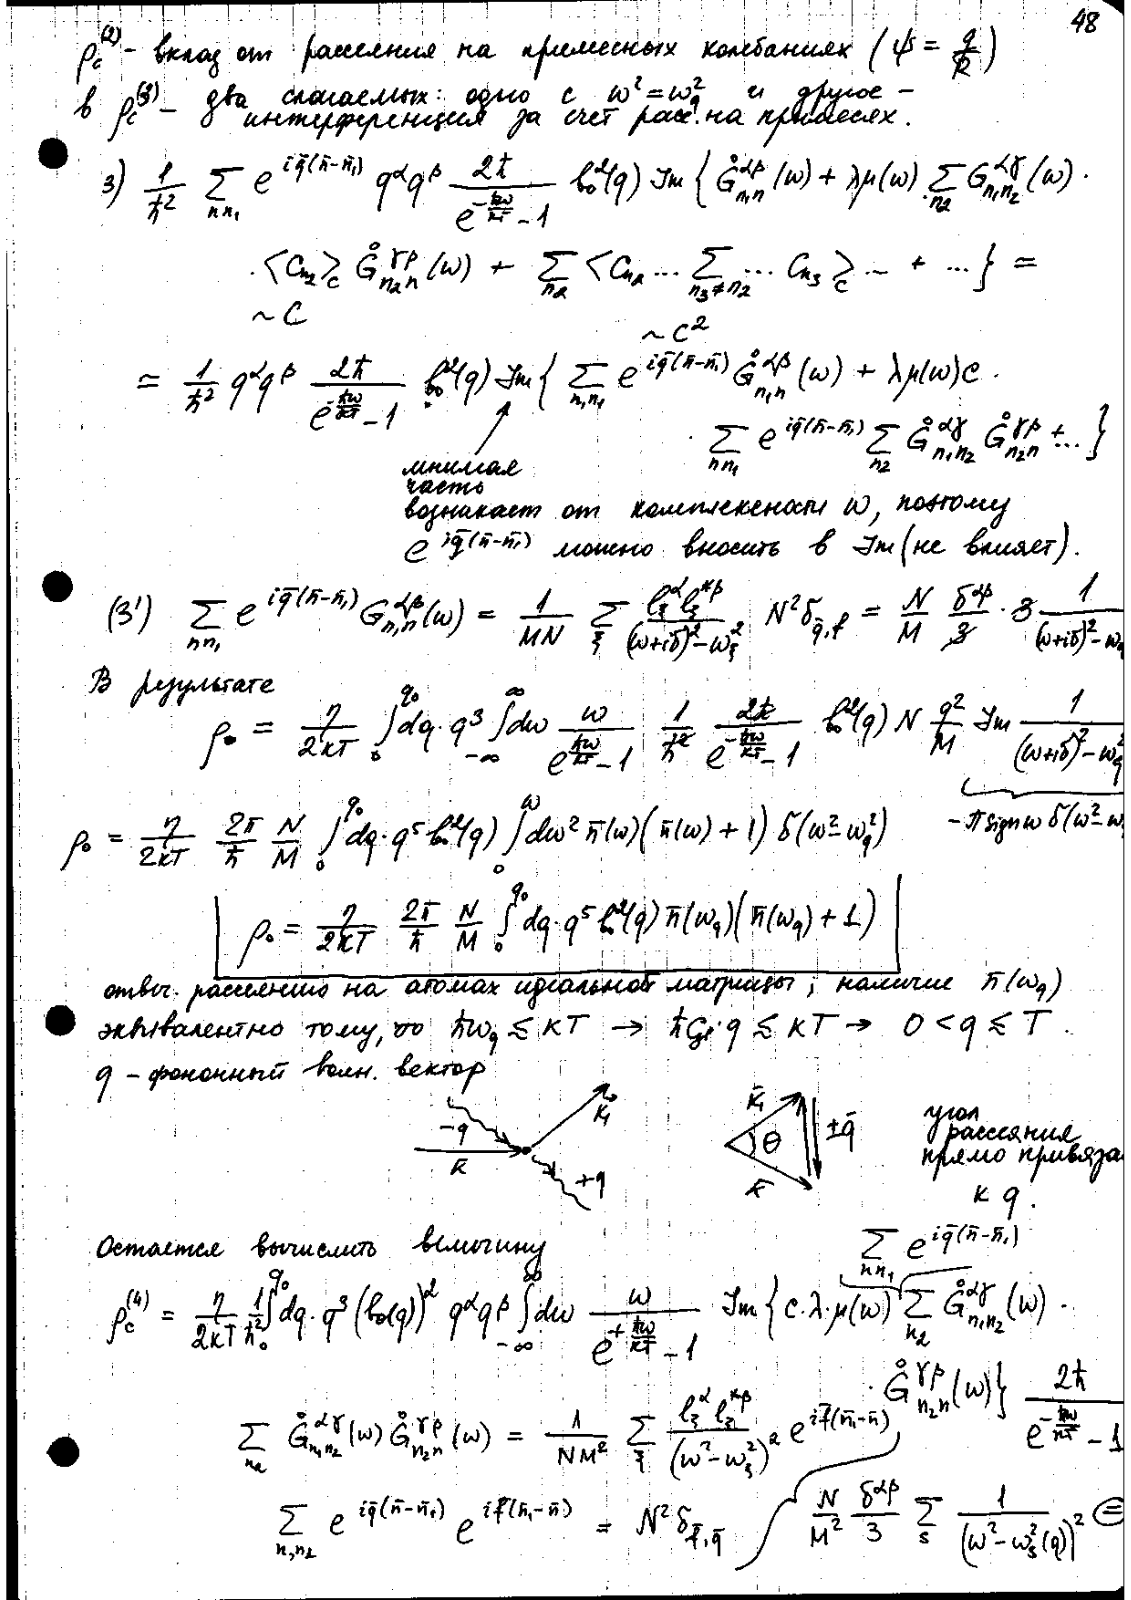 48
ρ_c^(2) - вклад от рассеяния на примесных колебаниях (ψ = q/k)
в ρ_c^(3) - два слагаемых: одно с ω² = ω_q² и другое -
интерференция за счет расс. на примесях.
3) 1/ħ² Σ_{nn₁} e^{iq̄(n̄-n̄₁)} q^α q^β 2ħ/(e^{-ħω/kT} - 1) b₀²(q) Im { G̊^{αβ}_{n₁n}(ω) + λμ(ω) Σ_{n₂} G^{αγ}_{n₁n₂}(ω) ·
· <C_{n₂}>_c G̊^{γβ}_{n₂n}(ω) + Σ_{n₂} <C_{n₂} ... Σ_{n₃≠n₂} ... C_{n₃}>_c ... + ... } ≃
~ C ~ C²
≃ 1/ħ² q^α q^β 2ħ/(e^{-ħω/kT} - 1) b₀²(q) Im { Σ_{n,n₁} e^{iq̄(n̄-n̄₁)} G̊^{αβ}_{n₁n}(ω) + λμ(ω)c ·
· Σ_{nn₁} e^{iq̄(n̄-n̄₁)} Σ_{n₂} G̊^{αγ}_{n₁n₂} G̊^{γβ}_{n₂n} + ... }
мнимая
часть
возникает от комплексности ω, поэтому
e^{iq̄(n̄-n̄₁)} можно вносить в Im (не влияет).
(3') Σ_{nn₁} e^{iq̄(n̄-n̄₁)} G^{αβ}_{n₁n}(ω) = 1/MN Σ_ξ l_ξ^α l_ξ^{*β}/((ω+iδ)² - ω_ξ²) N² δ_{q̄,f} = N/M δ^{αβ}/3 · 3 1/((ω+iδ)² - ω
В результате
ρ₀ = η/2kT ∫₀^{q₀} dq · q³ ∫_{-∞}^{∞} dω ω/(e^{ħω/kT} - 1) 1/ħ² 2ħ/(e^{-ħω/kT} - 1) b₀²(q) N q²/M Im 1/((ω+iδ)² - ω_q²
ρ₀ = η/2kT 2π/ħ N/M ∫₀^{q₀} dq · q⁵ b₀²(q) ∫₀^∞ dω² n̄(ω)(n̄(ω) + 1) δ(ω² - ω_q²) -π sign ω δ(ω² - ω
ρ₀ = η/2kT 2π/ħ N/M ∫₀^{q₀} dq · q⁵ b₀²(q) n̄(ω_q)(n̄(ω_q) + 1)
отвеч. рассеянию на атомах идеальной матрицы; наличие n̄(ω_q)
эквивалентно тому, что ħω_q ≲ kT → ħ · q ≲ kT → 0 < q ≲ T.
q - фононный волн. вектор
-q k̄ k̄₁ +q
k̄₁ θ k̄ ±q̄
угол
рассеяния
прямо привяза
к q.
Остается вычислить величину
Σ_{nn₁} e^{iq̄(n̄-n̄₁)}
ρ_c^(4) = η/2kT 1/ħ² ∫₀^{q₀} dq · q³ (b₀(q))² q^α q^β ∫_{-∞}^{∞} dω ω/(e^{+ħω/kT} - 1) Im { c · λ · μ(ω) Σ_{n₂} G̊^{αγ}_{n₁n₂}(ω) ·
· G̊^{γβ}_{n₂n}(ω) } 2ħ/(e^{-ħω/kT} - 1
Σ_{n₂} G̊^{αγ}_{n₁n₂}(ω) G̊^{γβ}_{n₂n}(ω) = 1/NM² Σ_ξ l_ξ^α l_ξ^{*β}/(ω² - ω_ξ²)² e^{if̄(n̄₁-n̄)}
Σ_{n,n₁} e^{iq̄(n̄-n̄₁)} e^{if̄(n̄₁-n̄)} = N² δ_{f̄,q̄} N/M² δ^{αβ}/3 Σ_s 1/(ω² - ω_s²(q))² =